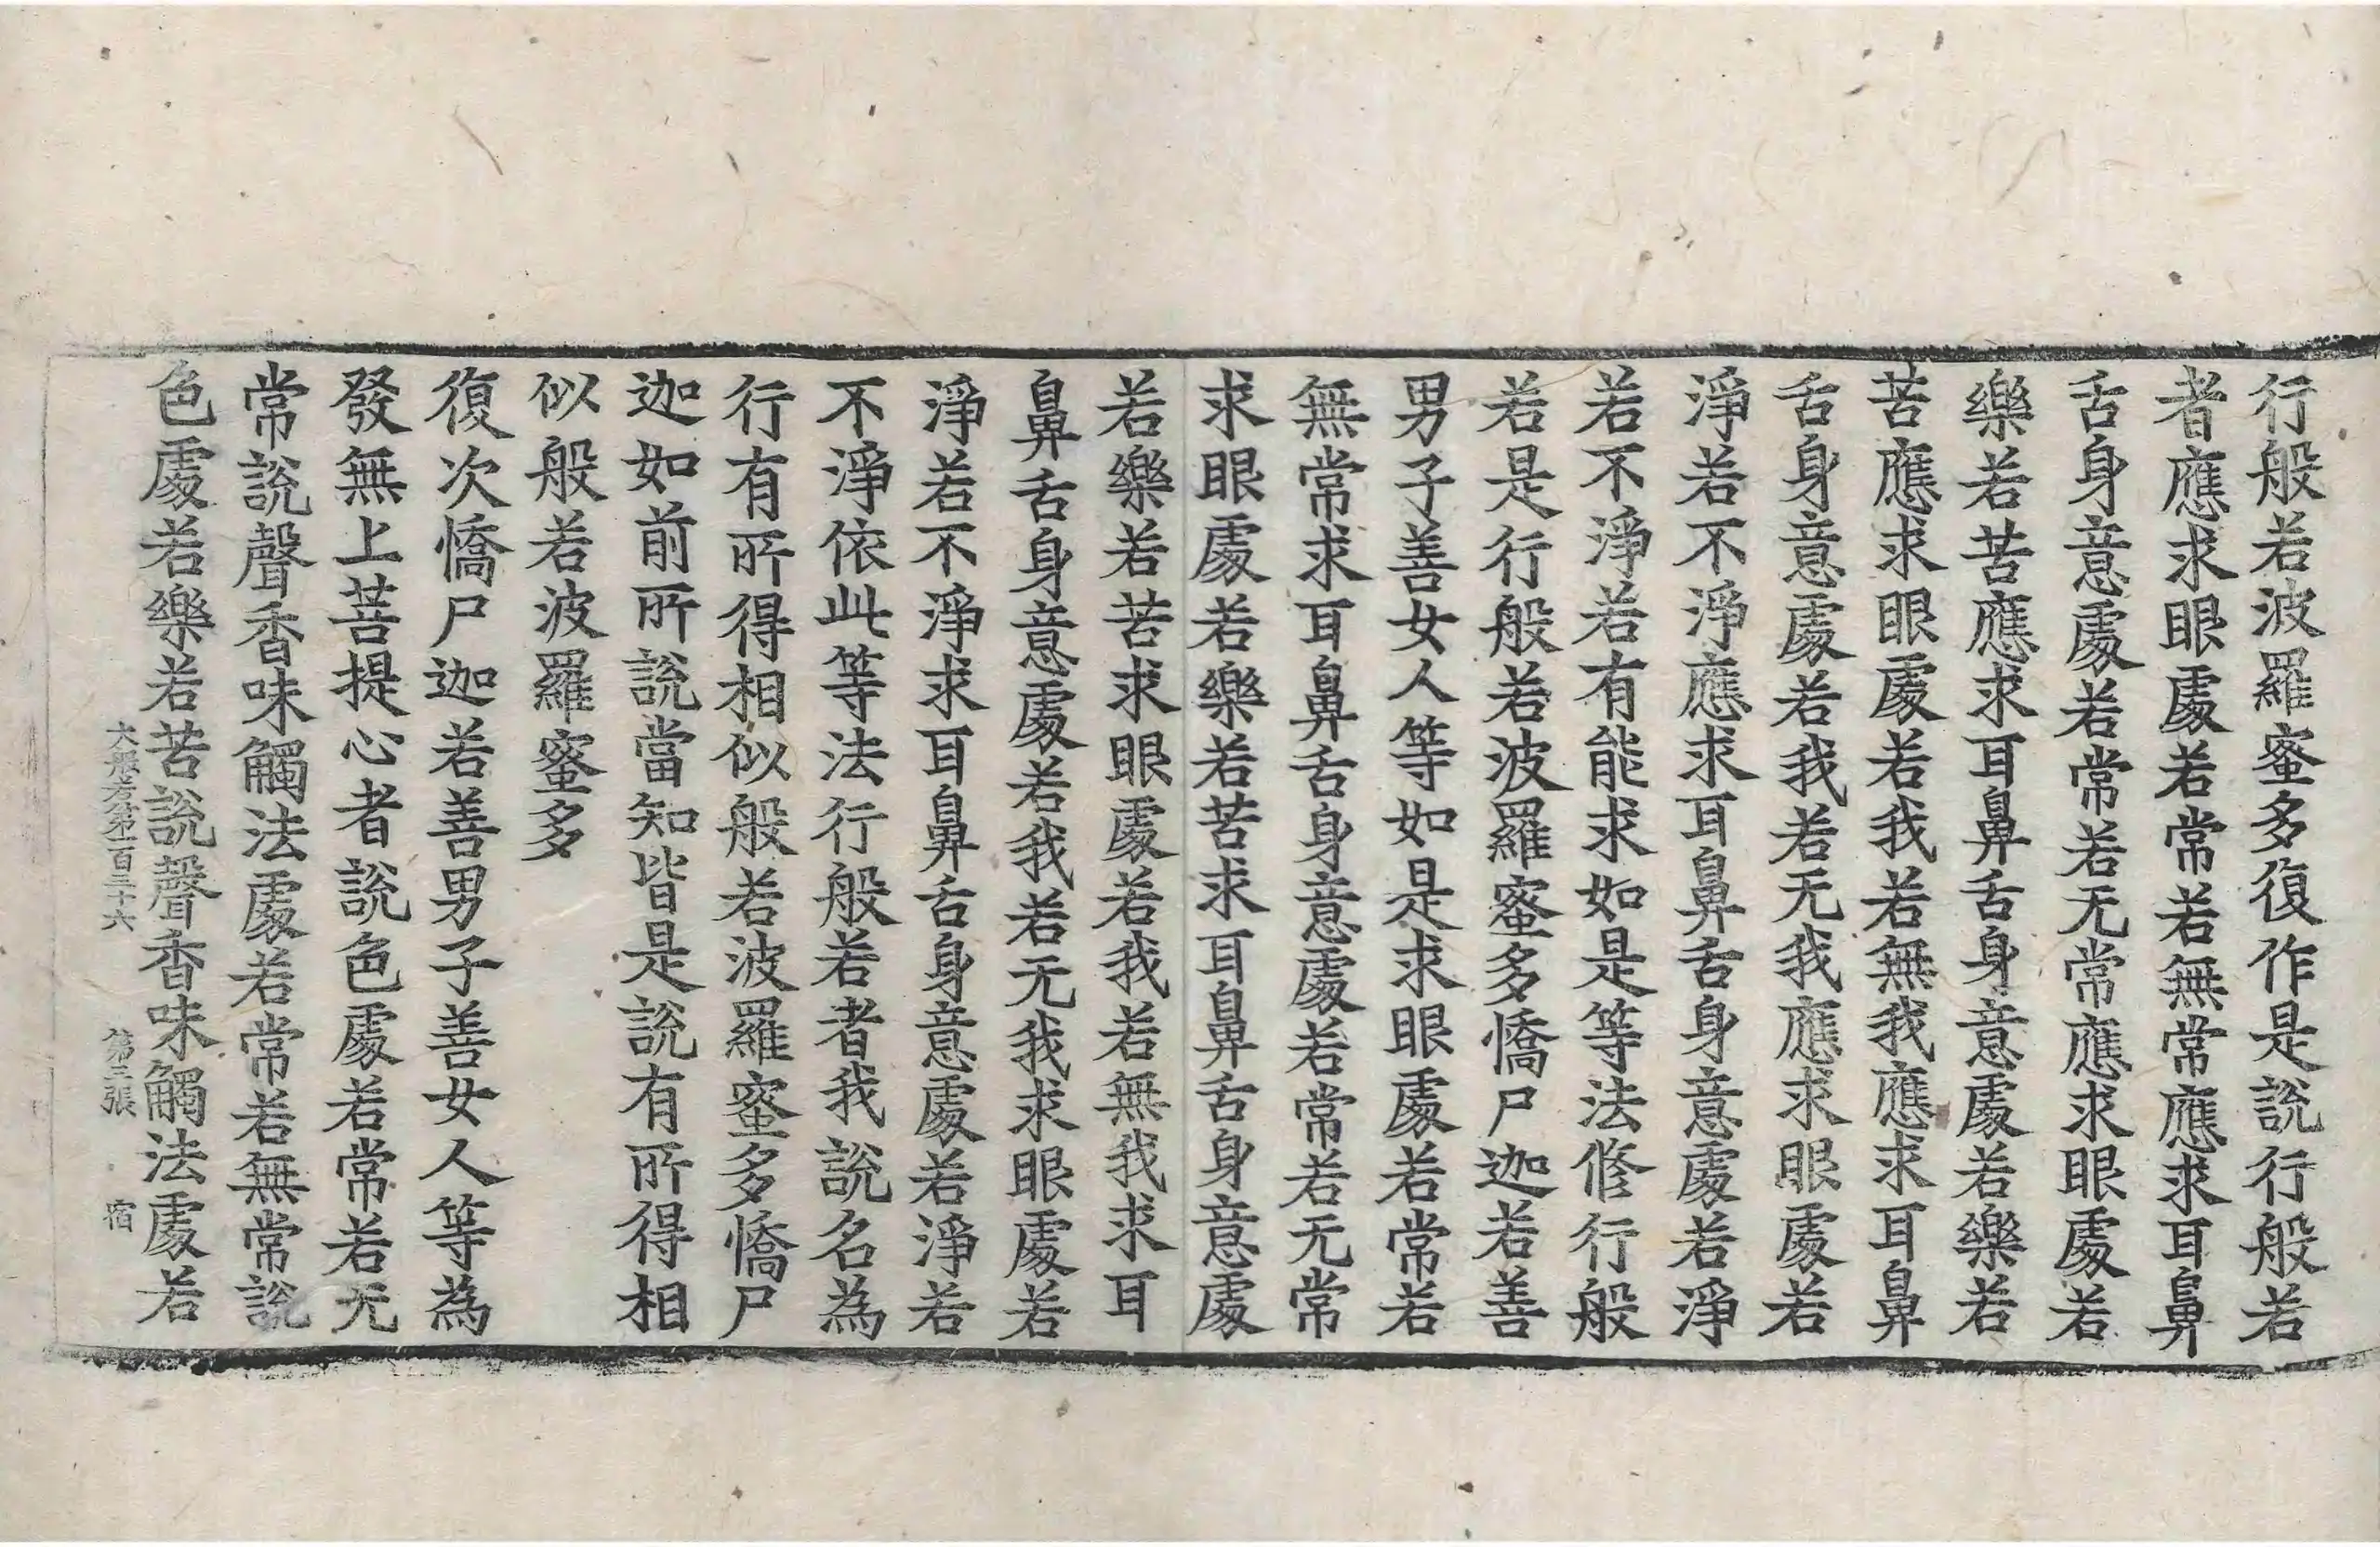 行般若波羅蜜多復作是說行般若
者應求眼處若常若無常應求耳鼻
舌身意處若常若无常應求眼處若
樂若苦應求耳鼻舌身意處若樂若
苦應求眼處若我若無我應求耳鼻
舌身意處若我若无我應求眼處若
淨若不淨應求耳鼻舌身意處若淨
若不淨若有能求如是等法修行般
若是行般若波羅蜜多憍尸迦若善
男子善女人等如是求眼處若常若
無常求耳鼻舌身意處若常若无常
求眼處若樂若苦求耳鼻舌身意處
若樂若苦求眼處若我若無我求耳
鼻舌身意處若我若无我求眼處若
淨若不淨求耳鼻舌身意處若淨若
不淨依此等法行般若者我說名為
行有所得相似般若波羅蜜多憍尸
迦如前所說當知皆是說有所得相
似般若波羅蜜多
復次憍尸迦若善男子善女人等為
發無上菩提心者說色處若常若无
常說聲香味觸法處若常若無常說
色處若樂若苦說聲香味觸法處若
大般若第一百三十六 第三張 宿